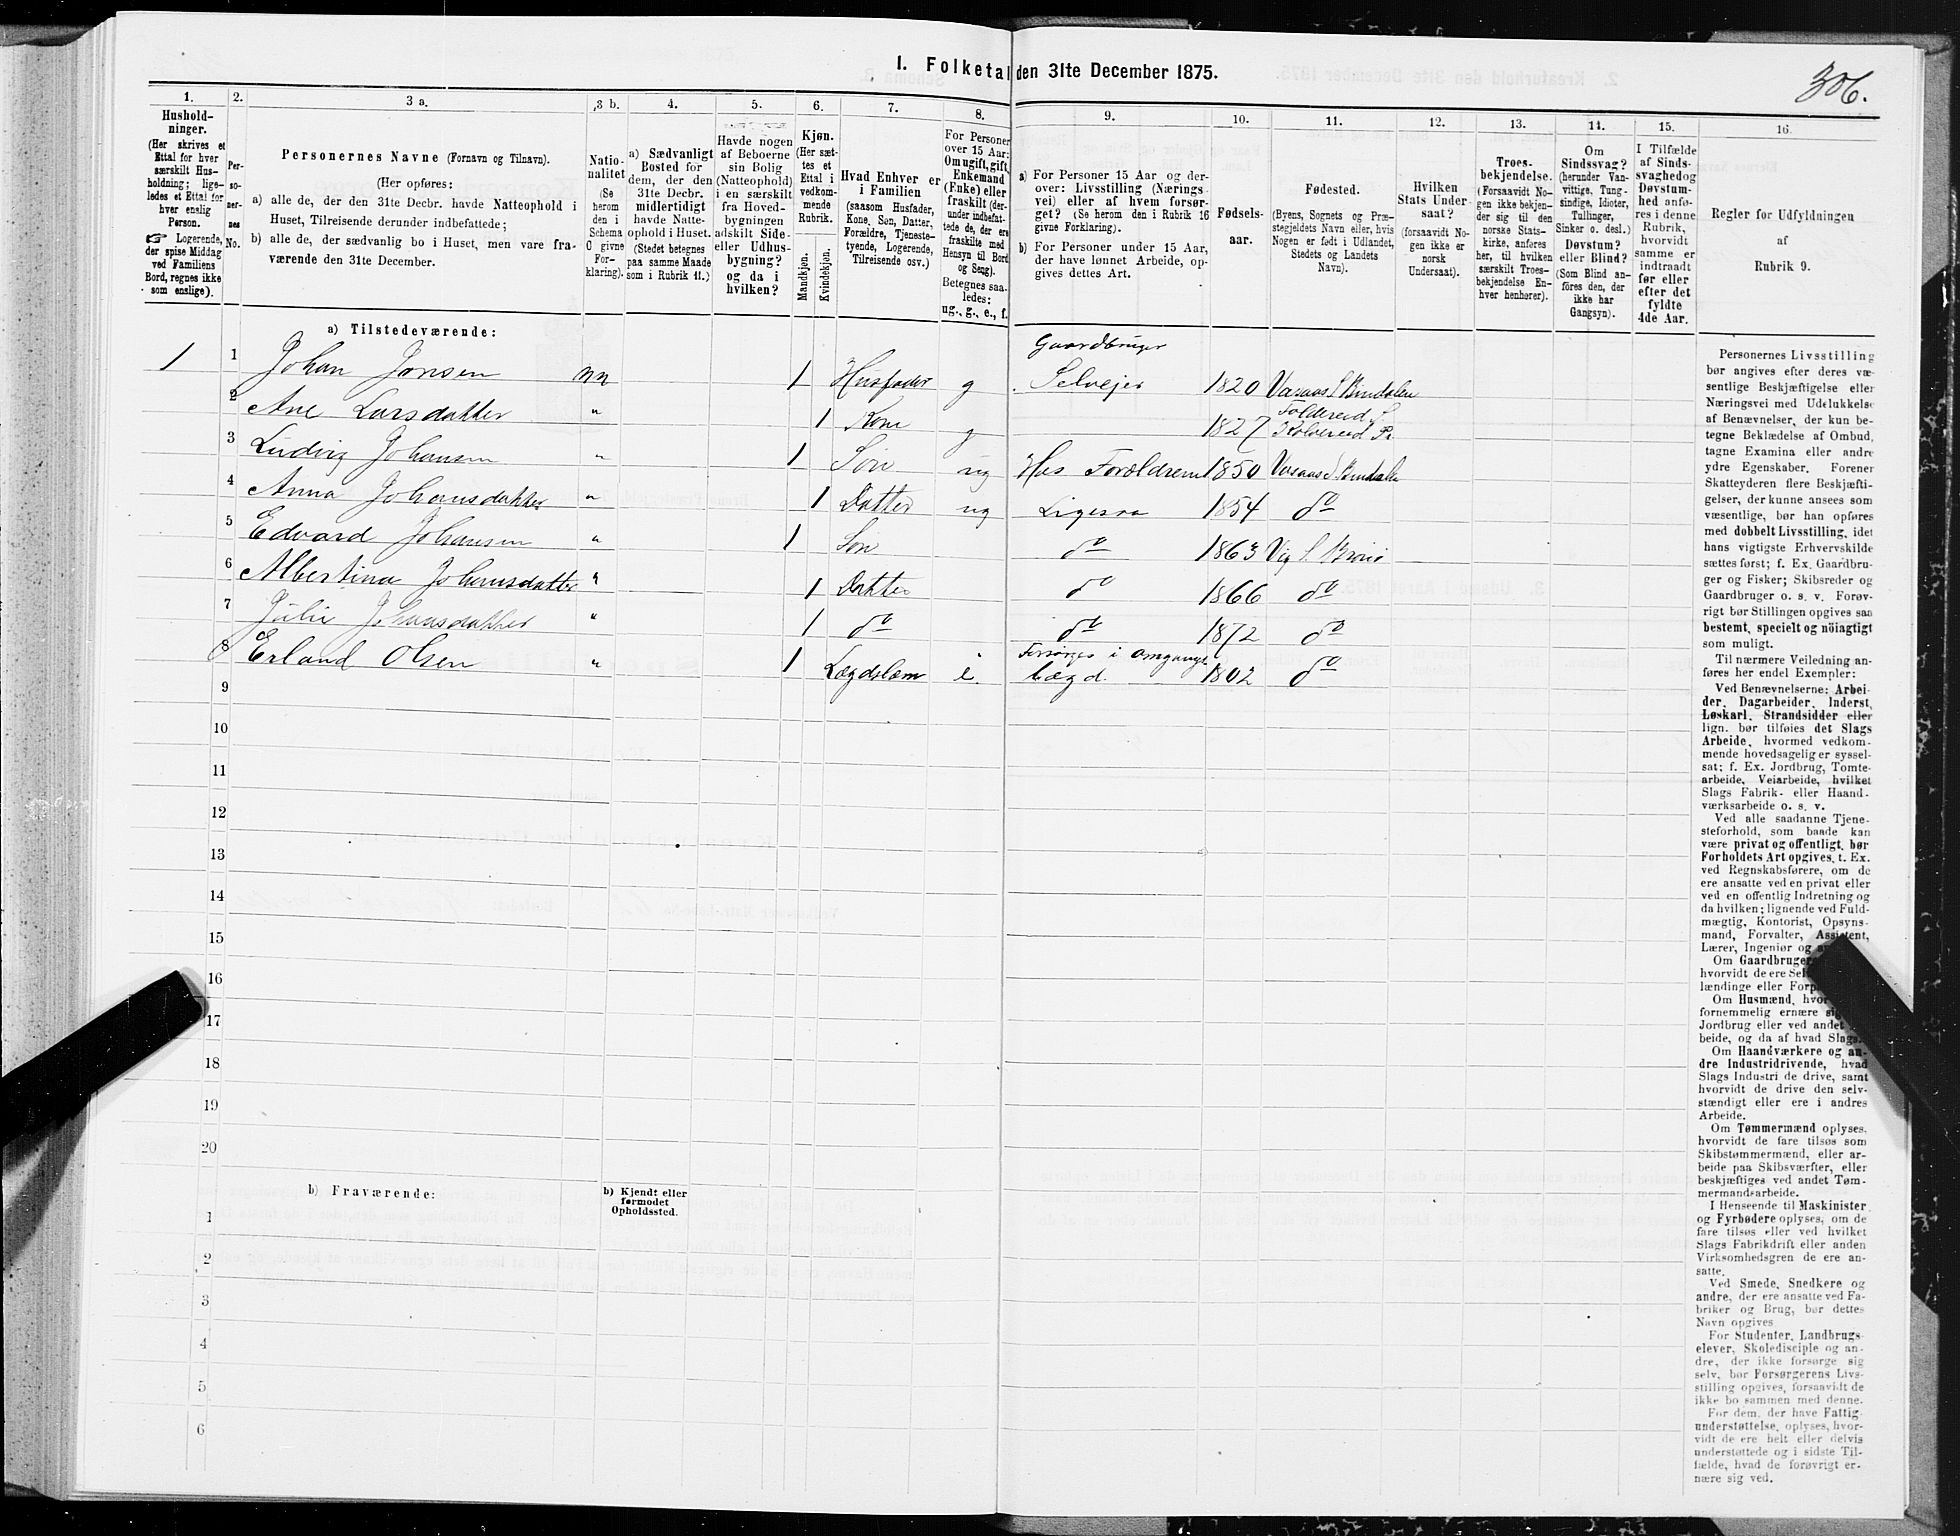 1. Folketal den 31te December 1875.
306.
1.
Hushold-
ninger.
(Her skrives et
Ettal for hver
særskilt Hus-
holdning; lige-
ledes et Ettal for
hver enslig
Person.
☞ Logerende,
der spise Middag
ved Familiens
Bord, regnes ikke
som enslige).
2.
Per-
so-
ner-
nes
No.
3 a.
Personernes Navne (Fornavn og Tilnavn).
(Her opføres:
a) alle de, der den 31te Decbr. havde Natteophold i
Huset, Tilreisende derunder indbefattede;
b) alle de, der sædvanlig bo i Huset, men vare fra-
værende den 31te December.
3 b.
Natio-
nalitet
(Se
herom
den i
Schema
O givne
For-
klaring).
4.
a) Sædvanligt
Bosted for
dem, der den
31te Decbr.
midlertidigt
havde Natte-
ophold i Huset.
(Stedet betegnes
paa samme Maade
som i Rubrik 11.)
5.
Havde nogen
af Beboerne
sin Bolig
(Natteophold)
i en særskilt
fra Hoved-
bygningen
adskilt Side-
eller Udhus-
bygning?
og da i
hvilken?
6.
Kjøn.
(Her sæt-
tes et
Ettal i
vedkom-
mende
Rubrik.
Mandkjøn.
Kvindekjøn.
7.
Hvad Enhver er
i Familien
(saasom Husfader,
Kone, Søn, Datter,
Forældre, Tjeneste-
tyende, Logerende,
Tilreisende osv.)
8.
For Personer
over 15 Aar:
Om ugift, gift,
Enkemand
(Enke) eller
fraskilt (der-
under indbefat-
tede de, der ere
fraskilte med
Hensyn til Bord
og Seng).
Betegnes saa-
ledes:
ug., g., e., f.
9.
a) For Personer 15 Aar og der-
over: Livsstilling (Nærings-
vei) eller af hvem forsør-
get? (Se herom den i Rubrik 16
givne Forklaring).
b) For Personer under 15 Aar,
der have lønnet Arbeide, op-
gives dettes Art.
10.
Fødsels-
aar.
11.
Fødested.
(Byens, Sognets og Præ-
stegjeldets Navn eller, hvis
Nogen er født i Udlandet,
Stedets og Landets
Navn).
12.
Hvilken
Stats Under-
saat?
(forsaavidt No-
gen ikke er
norsk
Undersaat).
13.
Troes-
bekjendelse.
(Forsaavidt No-
gen ikke bekjen-
der sig til den
norske Stats-
kirke, anføres
her, til hvilken
særskilt Troes-
bekjendelse En-
hver henhører).
14.
Om
Sindssvag?
(herunder Van-
vittige, Tung-
sindige, Idioter,
Tullinger,
Sinker o. desl.)
Døvstum?
eller Blind?
(Som Blind an-
føres den, der
ikke har
Gangsyn).
15.
I Tilfælde
af Sinds-
svaghed og
Døvstum-
hed anfø-
res i denne
Rubrik,
hvorvidt
samme er
indtraadt
før eller
efter det
fyldte
4de Aar.
16.
Regler for Udfyldningen
af
Rubrik 9.
a) Tilstedeværende:
1 1 Johan Jonsen nn 1 Husfader g Gaardbruger Selveier 1820 Vasaas S Bindalen
2 Ane Larsdatter " 1 Kone g 1827 Foldereid S Kolvereid Pr
3 Ludvig Johansen " 1 Søn ug Hos Forældrene 1850 Vasaas S Bindalen
4 Anna Johansdatter " 1 Datter ug Ligesaa 1854 do
5 Edvard Johansen " 1 Søn do 1863 Vig S. Brønø
6 Albertina Johansdatter " 1 Datter do 1866 do
7 Julie Johansdatter " 1 do do 1872 do
8 Erland Olsen " 1 Lægdslem e. Forsørges i omgangs lægd. 1802 do
9
10
11
12
13
14
15
16
17
18
19
20
b) Fraværende:
b) Kjendt eller
formodet
Opholdssted.
1
2
3
4
5
6
Personernes Livsstilling
bør angives efter deres væ-
sentlige Beskjæftigelse eller
Næringsvei med Udelukkelse
af Benævnelser, der kun be-
tegne Beklædelse af Ombud,
tagne Examina eller andre
ydre Egenskaber. Forener
Skatteyderen flere Beskjæfti-
gelser, der kunne ansees som
væsentlige, bør han opføres
med dobbelt Livsstilling, idet
hans vigtigste Erhvervskilde
sættes først; f. Ex. Gaardbru-
ger og Fisker; Skibsreder og
Gaardbruger o. s. v. Forøv-
rigt bør Stillingen opgives saa
bestemt, specielt og nöiagtigt
som muligt.
Til nærmere Veiledning an-
føres her endel Exempler:
Ved Benævnelserne: Arbei-
der, Dagarbeider, Inderst,
Løskarl, Strandsidder eller
lign. bør tilføies det Slags
Arbeide, hvormed vedkom-
mende hovedsagelig er syssel-
sat; f. Ex. Jordbrug, Tomte-
arbeide, Veiarbeide, hvilket
Slags Fabrik- eller Haand-
værksarbeide o. s. v.
Ved alle saadanne Tjene-
steforhold, som baade kan
være privat og offentligt, bør
Forholdets Art opgives, t. Ex.
ved Regnskabsførere, om de
ere ansatte ved en privat eller
ved en offentlig Indretning og
da hvilken; lignende ved Fuld-
mægtig, Kontorist, Opsyns-
mand, Forvalter, Assistent,
Lærer, Ingeniør og
Om Gaardbruger
hvorvidt de ere Sel
lændinge eller Forp
Om Husmænd, hvor
fornemmelig ernære sig
Jordbrug eller ved andet
beide, og da af hvad Slags.
Om Haandværkere og an-
dre Industridrivende, hvad
Slags Industri de drive, samt
hvorvidt de drive den selv-
stændigt eller ere i andres
Arbeide.
Om Tømmermænd oplyses,
hvorvidt de fare tilsøs som
Skibstømmermænd, eller ar-
beide paa Skibsværfter, eller
beskjæftiges ved andet Tøm-
mermandsarbeide.
I Henseende til Maskinister
og Fyrbødere oplyses, om de
fare tilsøs eller ved hvilket
Slags Fabrikdrift eller anden
Virksomhedsgren de ere an-
satte.
Ved Smede, Snedkere og
andre, der ere ansatte ved Fa-
briker og Brug, bør dettes
Navn opgives
For Studenter, Landbrugs-
elever, Skoledisciple og an-
dre, der ikke forsørge sig
selv, bør Forsørgerens Livs-
stilling opgives, forsaavidt de
ikke bo sammen med denne.
For dem, der have Fattig-
understøttelse, oplyses, hvor-
vidt de ere helt eller delvis
understøttede og i sidste Til-
fælde, hvad de forøvrigt er-
nære sig ved.